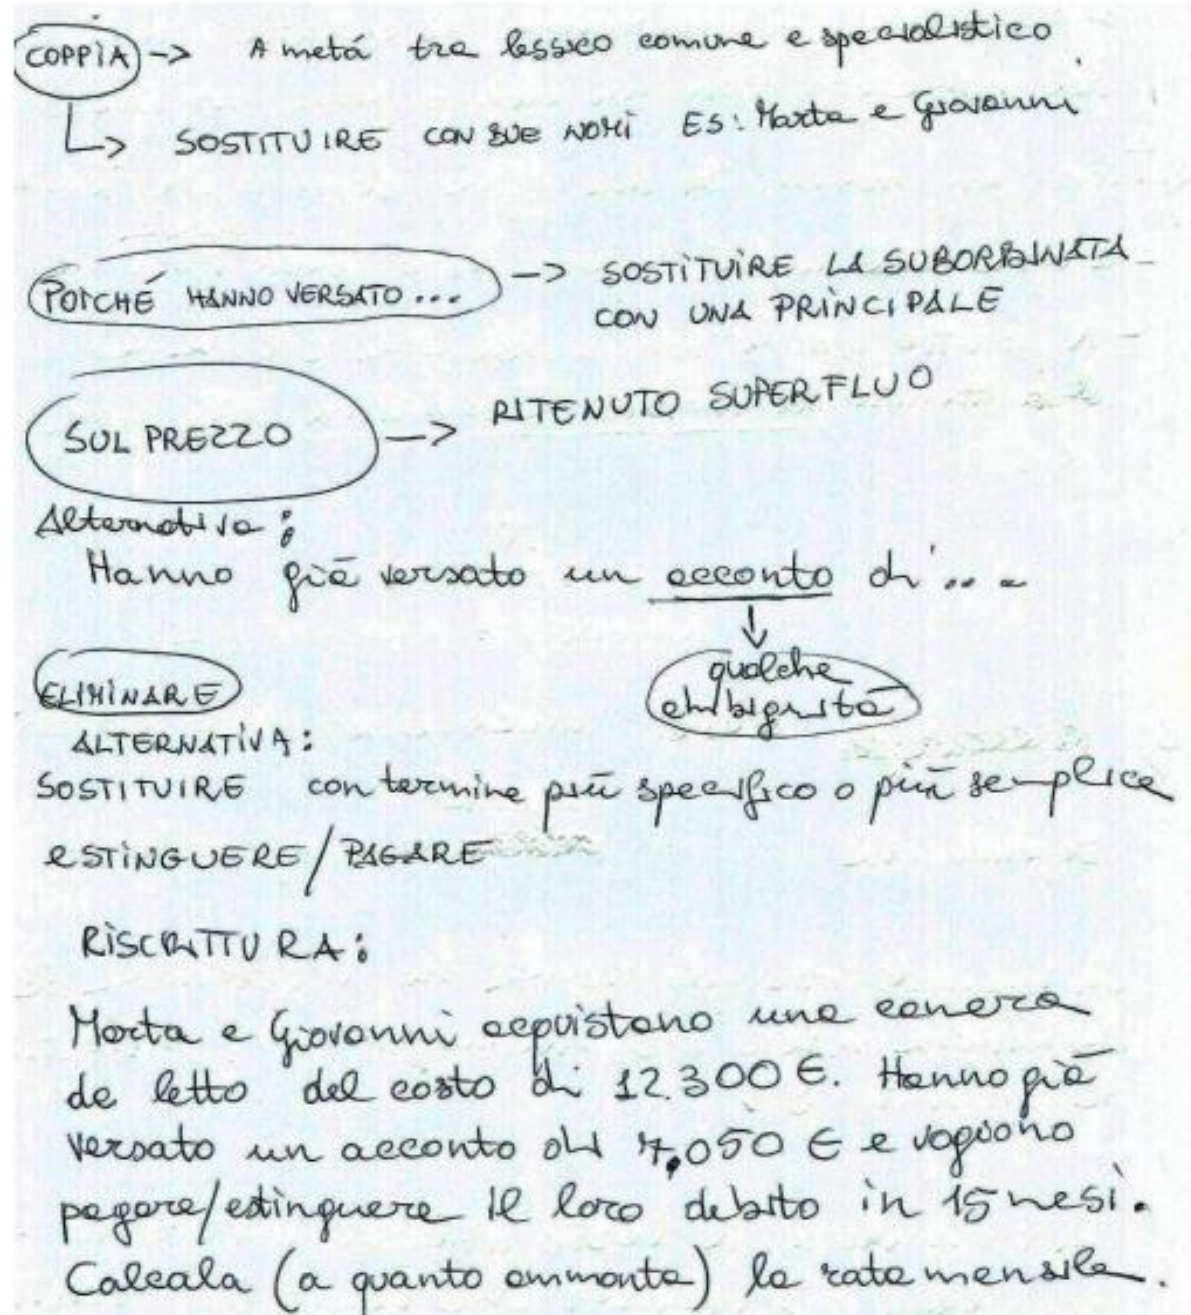 COPPIA -> A metá tra lessico comune e specialistico.
↳ SOSTITUIRE CON DUE NOMI ES: Marta e Giovanni
POICHÉ HANNO VERSATO... -> SOSTITUIRE LA SUBORDINATA
CON UNA PRINCIPALE
SUL PREZZO -> RITENUTO SUPERFLUO
Alternativa:
Hanno già versato un acconto di ...
↓
qualche
ambiguità
ELIMINARE
ALTERNATIVA:
SOSTITUIRE con termine più specifico o più semplice
ESTINGUERE/PAGARE
RISCRITTURA:
Marta e Giovanni acquistano una camera
da letto del costo di 12.300 €. Hanno già
versato un acconto di 7.050 € e vogliono
pagare/estinguere il loro debito in 15 mesi.
Calcola (a quanto ammonta) la rata mensile.